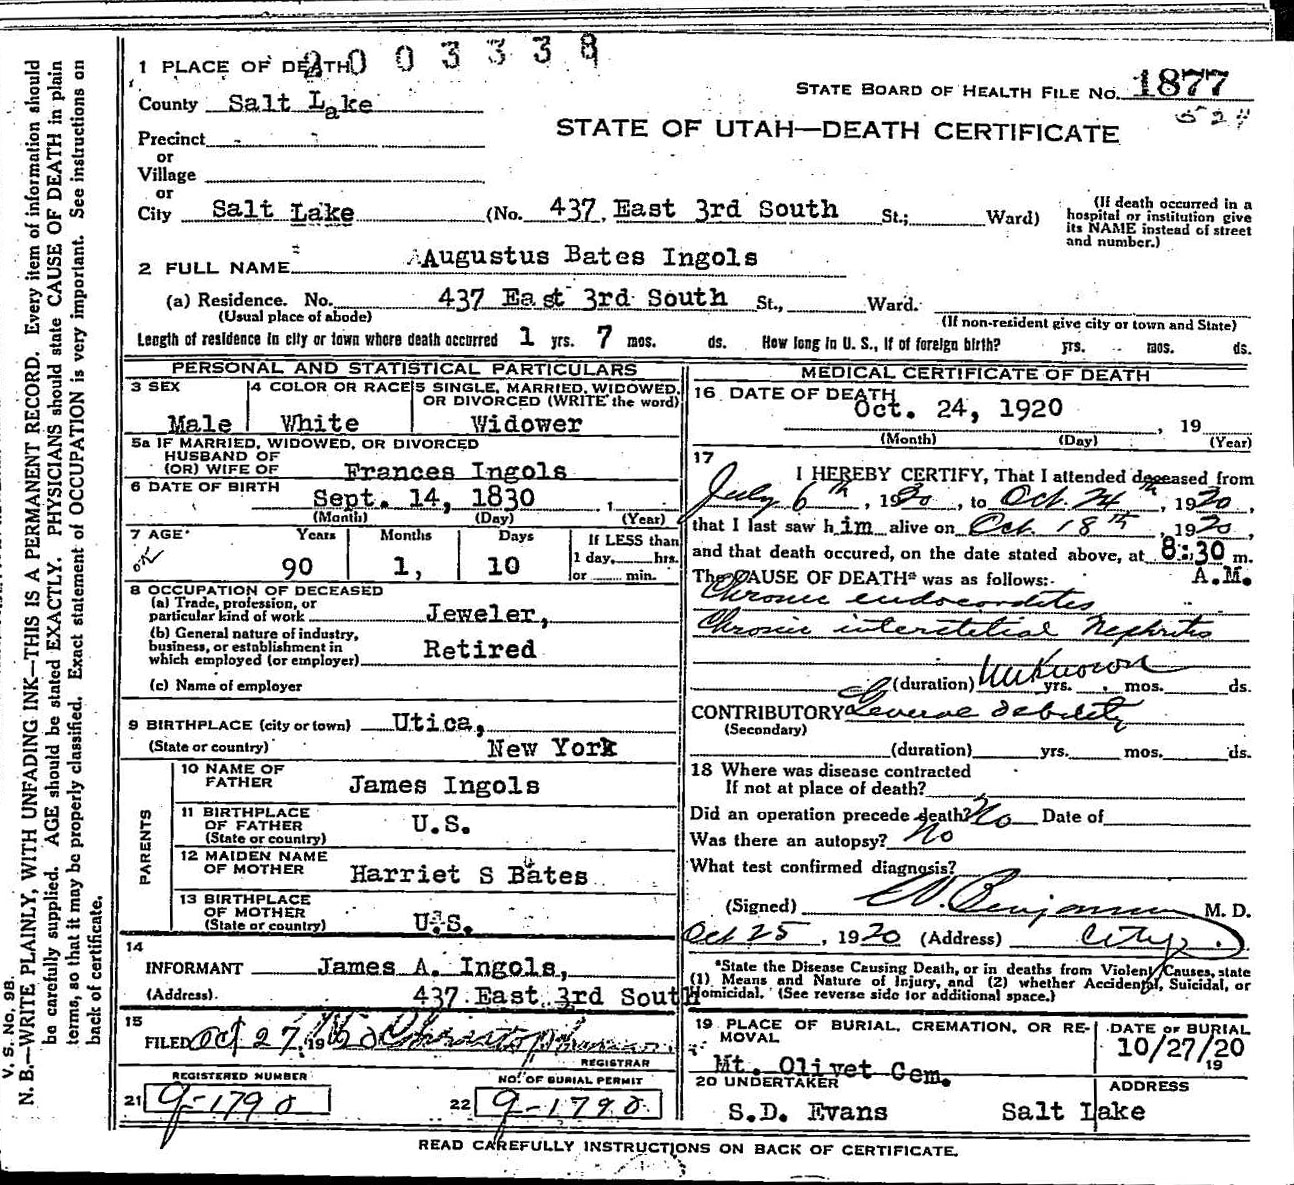 2003338
1 PLACE OF DEATH
STATE BOARD OF HEALTH FILE NO. 1877
524
County Salt Lake
STATE OF UTAH—DEATH CERTIFICATE
Precinct
or
Village
or
City Salt Lake (No. 437, East 3rd South St.; Ward)
(If death occurred in a
hospital or institution give
its NAME instead of street
and number.)
2 FULL NAME Augustus Bates Ingols
(a) Residence. No. 437 East 3rd South St., Ward.
(Usual place of abode)
(If non-resident give city or town and State)
Length of residence in city or town where death occurred 1 yrs. 7 mos. ds. How long in U. S., if of foreign birth? yrs. mos. ds.
PERSONAL AND STATISTICAL PARTICULARS
3 SEX
Male
4 COLOR OR RACE
White
5 SINGLE, MARRIED, WIDOWED,
OR DIVORCED (WRITE the word)
Widower
5a IF MARRIED, WIDOWED, OR DIVORCED
HUSBAND OF
(OR) WIFE OF Frances Ingols
6 DATE OF BIRTH
Sept. 14, 1830
(Month) (Day) (Year)
7 AGE
OK
Years Months Days
90 1, 10
If LESS than
1 day, hrs.
or min.
8 OCCUPATION OF DECEASED
(a) Trade, profession, or
particular kind of work Jeweler,
(b) General nature of industry,
business, or establishment in
which employed (or employer) Retired
(c) Name of employer
9 BIRTHPLACE (city or town) Utica,
(State or country) New York
PARENTS
10 NAME OF
FATHER James Ingols
11 BIRTHPLACE
OF FATHER
(State or country) U.S.
12 MAIDEN NAME
OF MOTHER Harriet S Bates
13 BIRTHPLACE
OF MOTHER
(State or country) U.S.
14
INFORMANT James A. Ingols,
(Address) 437 East 3rd South
15
FILED Oct 27, 1920
REGISTRAR
REGISTERED NUMBER
21 9-1790
NO. OF BURIAL PERMIT
22 9-1790
MEDICAL CERTIFICATE OF DEATH
16 DATE OF DEATH
Oct. 24, 1920 , 19
(Month) (Day) (Year)
17
I HEREBY CERTIFY, That I attended deceased from
July 6th, 1920, to Oct. 24th, 1920,
that I last saw him alive on Oct. 18th, 1920,
and that death occured, on the date stated above, at 8:30 m.
A.M.
The CAUSE OF DEATH* was as follows:
Chronic endocordites
Chronic interstitial Nephritis
(duration) Unknown yrs. mos. ds.
CONTRIBUTORY General debility
(Secondary)
(duration) yrs. mos. ds.
18 Where was disease contracted
If not at place of death?
Did an operation precede death? No Date of
Was there an autopsy? No
What test confirmed diagnosis?
(Signed) M. D.
Oct 25, 1920 (Address) City
*State the Disease Causing Death, or in deaths from Violent Causes, state
(1) Means and Nature of Injury, and (2) whether Accidental, Suicidal, or
Homicidal. (See reverse side for additional space.)
19 PLACE OF BURIAL, CREMATION, OR RE-
MOVAL
Mt. Olivet Cem.
DATE OF BURIAL
10/27/20
19
20 UNDERTAKER
S.D. Evans
ADDRESS
Salt Lake
READ CAREFULLY INSTRUCTIONS ON BACK OF CERTIFICATE.
V. S. No. 98.
N. B.—WRITE PLAINLY, WITH UNFADING INK—THIS IS A PERMANENT RECORD. Every item of information should
be carefully supplied. AGE should be stated EXACTLY. PHYSICIANS should state CAUSE OF DEATH in plain
terms, so that it may be properly classified. Exact statement of OCCUPATION is very important. See instructions on
back of certificate.